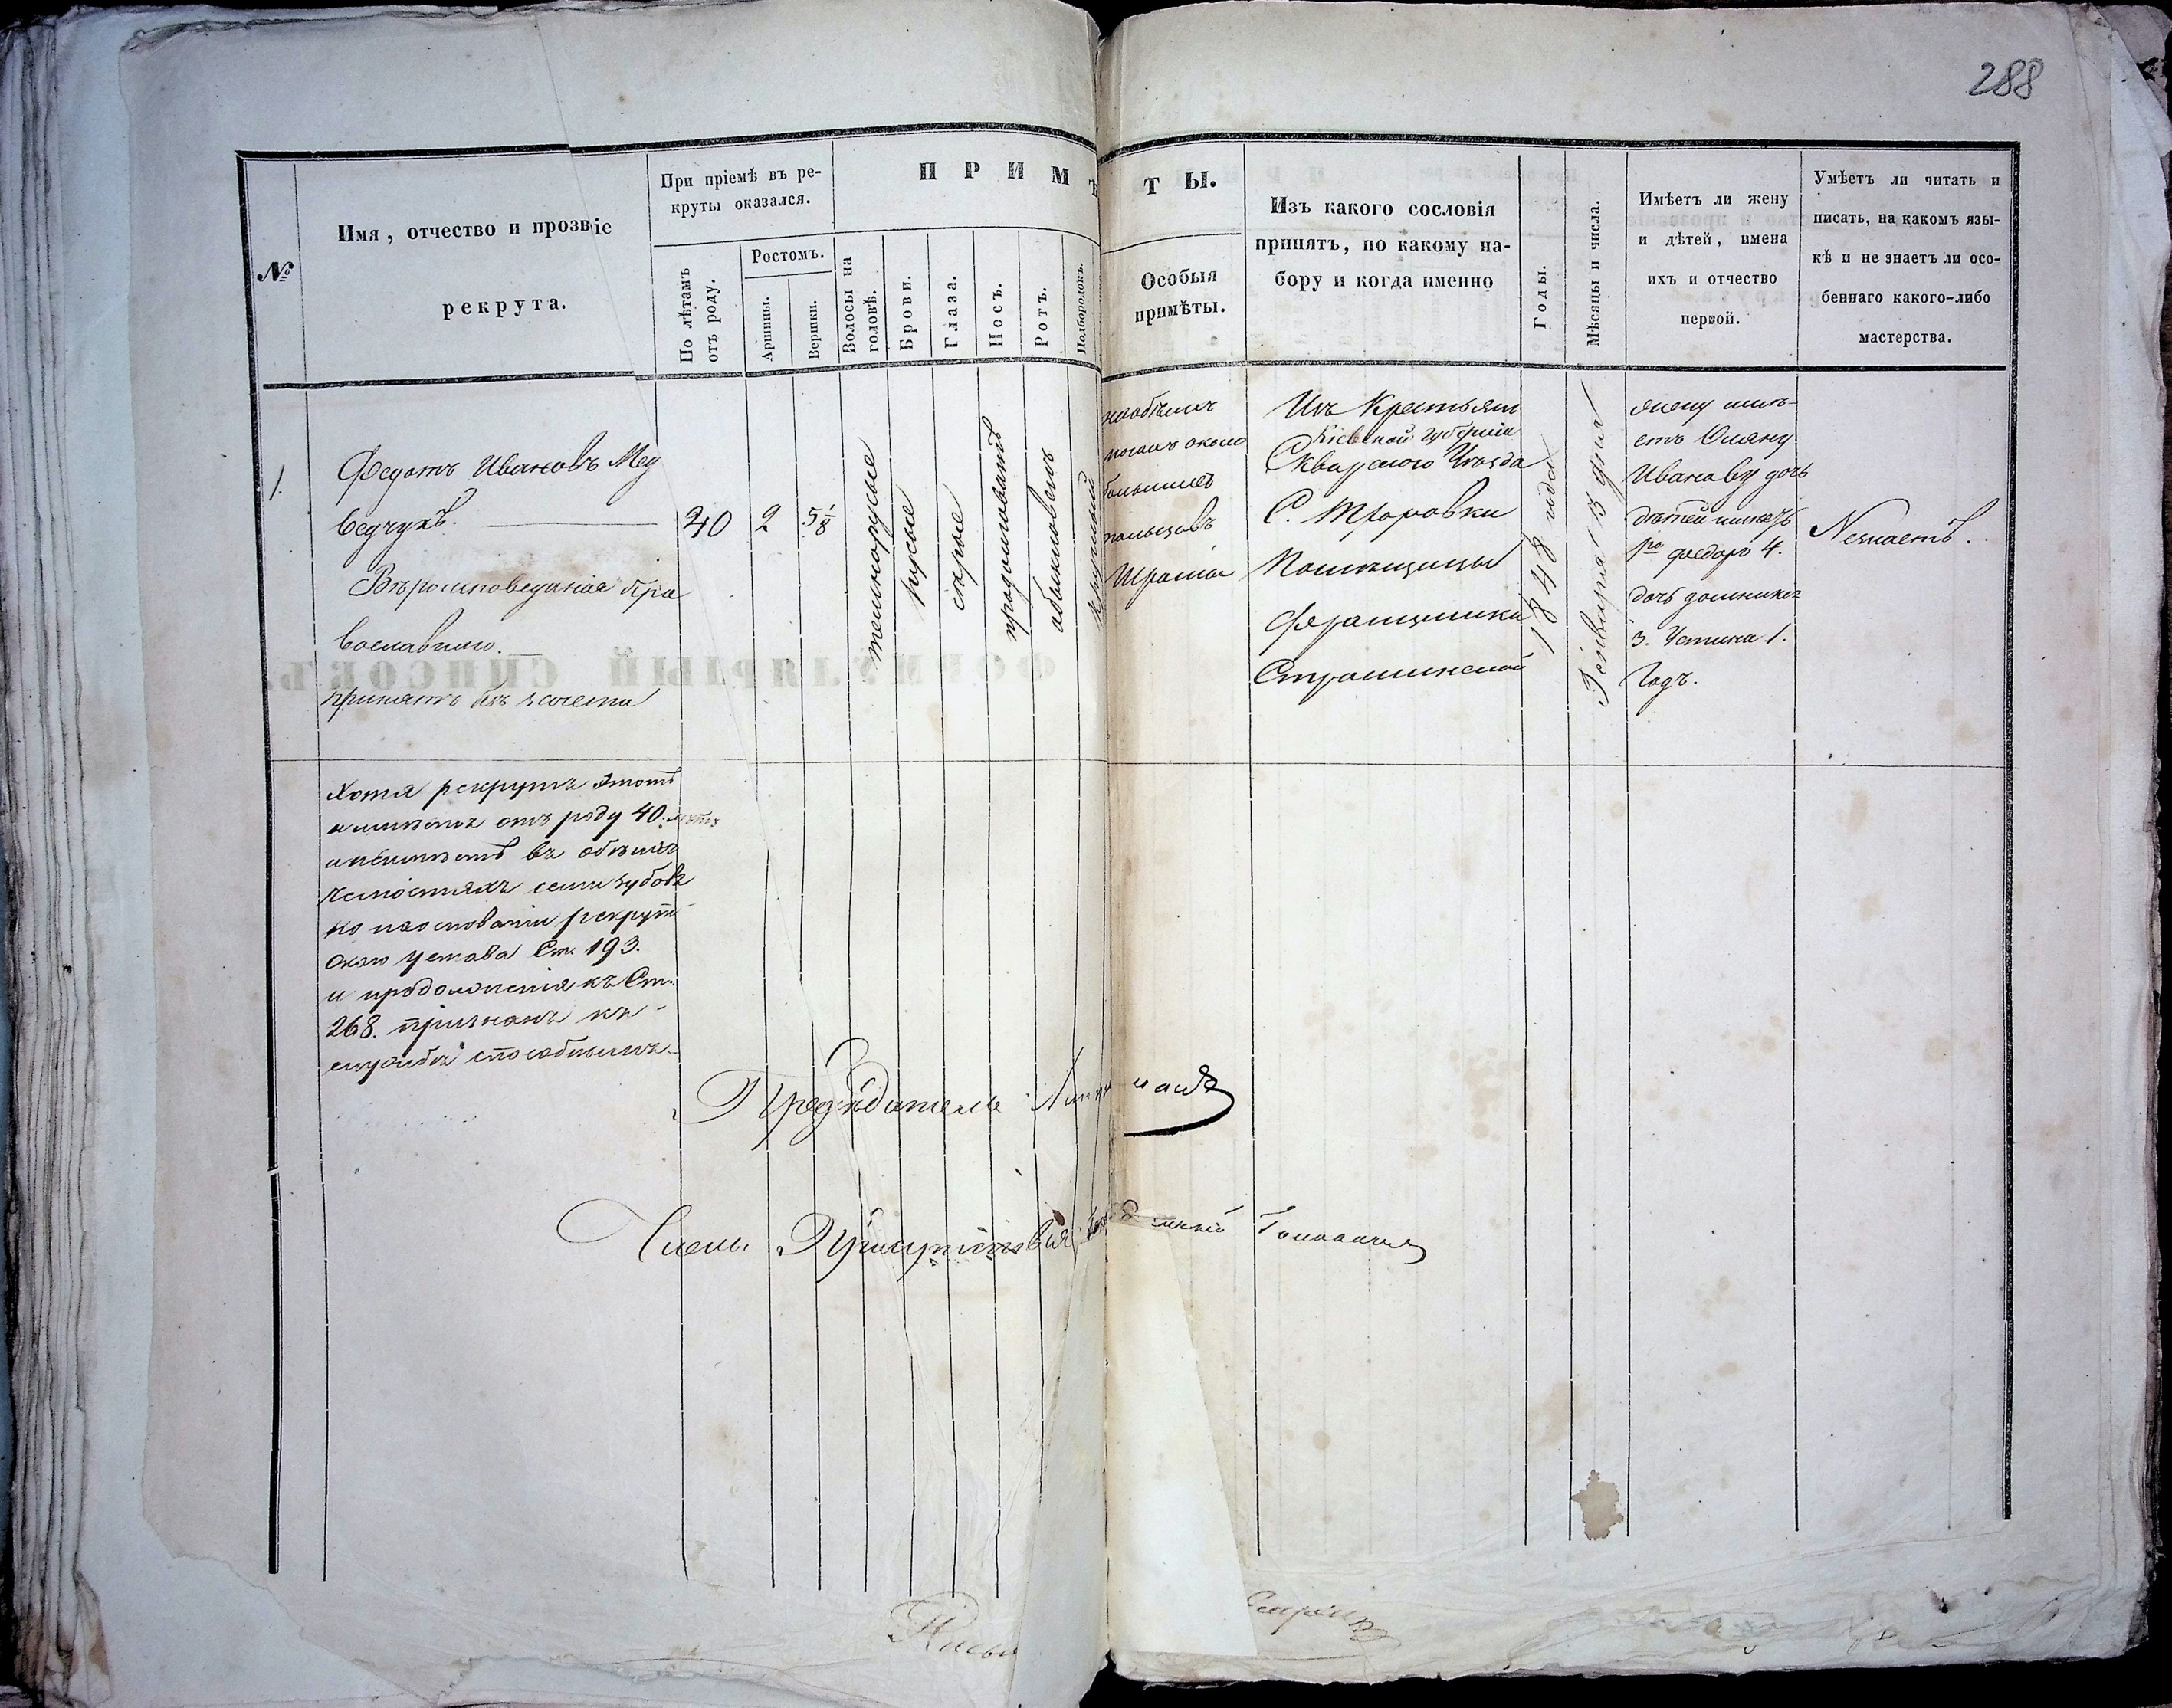 288
№
Имя, отчество и прозвіе
рекрута.
При пріемѣ въ ре-
круты оказался.
По лѣтамъ
отъ роду.
Ростомъ.
Аршины.
Вершки.
ПРИМѢТЫ.
Волосы на
головѣ.
Брови.
Глаза.
Носъ.
Ротъ.
Подбородокъ.
Особыя
примѣты.
Изъ какого сословія
принятъ, по какому на-
бору и когда именно
Годы.
Мѣсяцы и числа.
Имѣетъ ли жену
и дѣтей, имена
ихъ и отчество
первой.
Умѣетъ ли читать и
писать, на какомъ язы-
кѣ и не знаетъ ли осо-
беннаго какого-либо
мастерства.
1.
Федотъ Ивановъ Мед
ведчукъ.
Вѣроисповеданія Пра
вославнаго.
принятъ безъ зачета
40
2
5 1/8
темнорусые
русые
серые
продолговатъ
обыкновенъ
круглый
на обѣихъ
ногахъ около
большихъ
пальцовъ
Шрамы
Изъ Крестьянъ
Кіевской губерніи
Сквирского Уезда
С.
Помѣщицы
Францишки
1848 года
Генваря 13 дня
жену имѣ-
етъ Оляну
Иванову дочь
дѣтей
Федоръ 4.
дочь
3. Устина 1.
Годъ.
Незнаетъ.
Хотя рекрутъ этотъ
имѣетъ отъ роду 40 лѣтъ
и неимѣетъ въ обѣихъ
челюстяхъ семи зубовъ
но на основаніи рекрут
скаго устава Ст. 193.
и продолженія къ Ст.
268. признанъ къ
службѣ способнымъ.
Предсѣдатель
Членъ Присутствія
ФОРМУЛЯРНЫЙ СПИСОКЪ